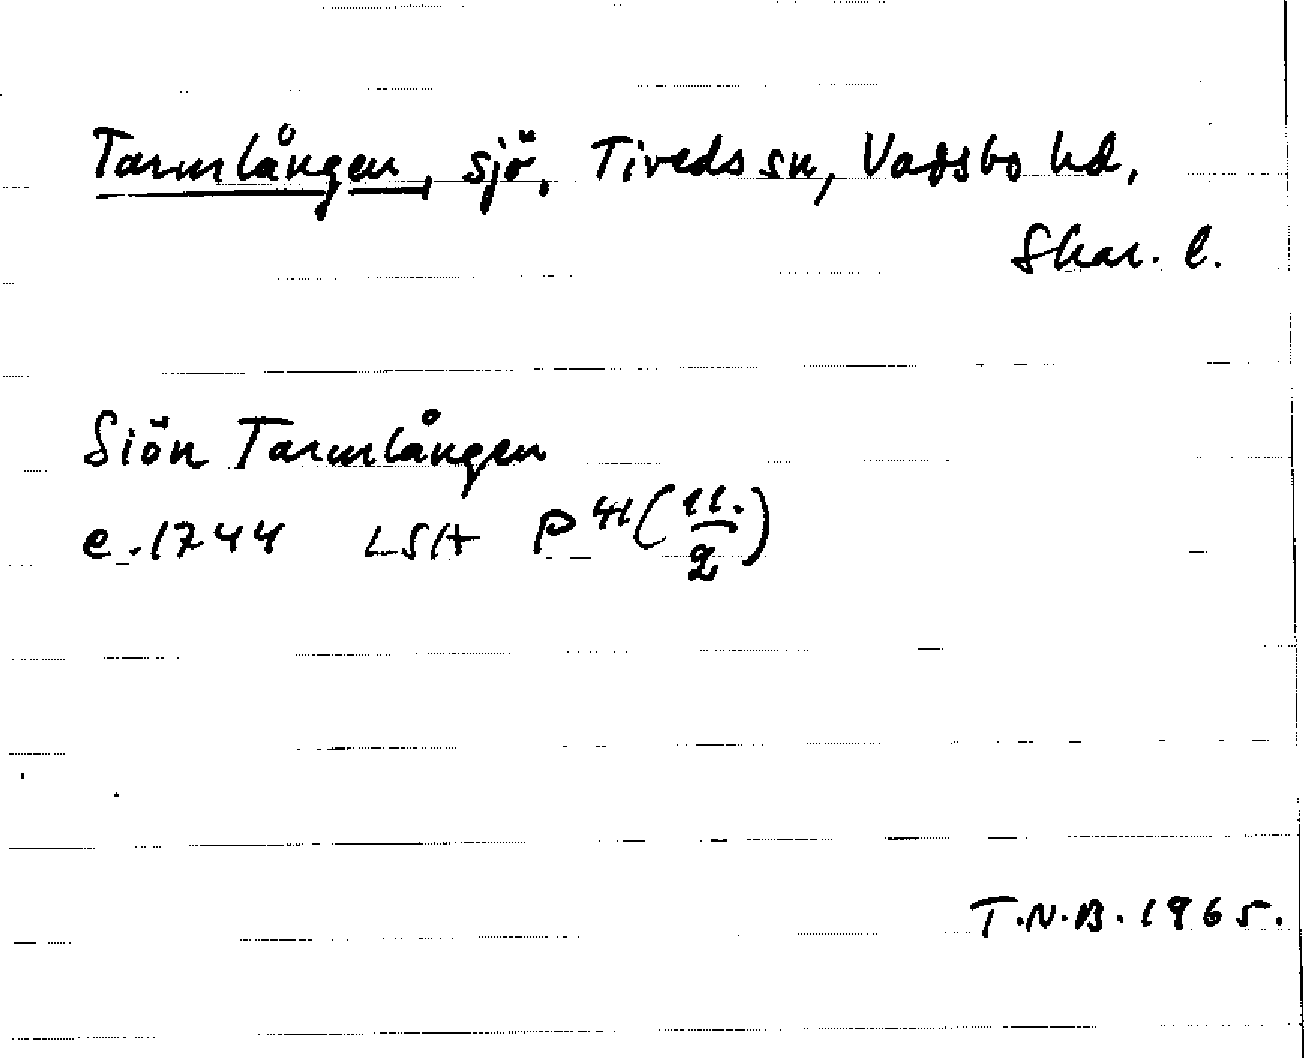 Tarmlången, sjö, Tiveds sn, Vadsbo hd,
Skar. l.
Siön Tarmlången
e. 1744 LSA P 41 (11./2)
T.N.B. 1965.